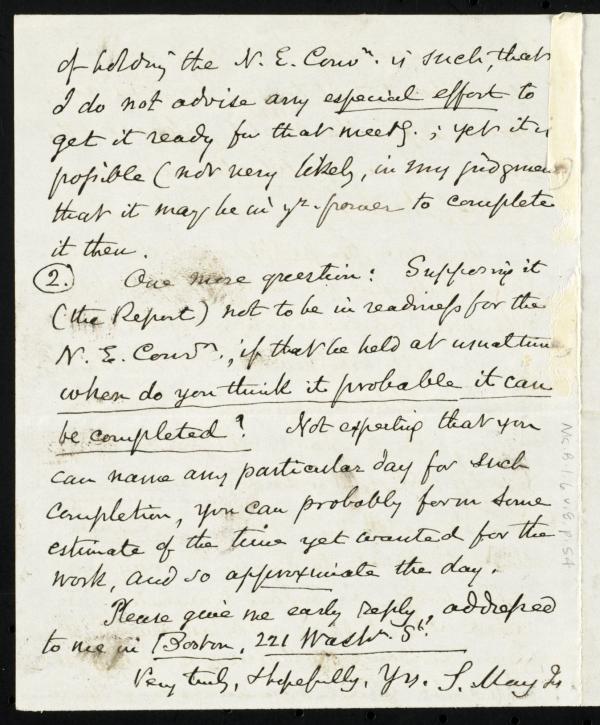 of holding the N. E. Convn. is such, that
I do not advise any especial effort to
get it ready for that meetg. ; yet it is
possible (not very likely, in my judgment)
that it may be in yr. power to complete
it then.
2. One more question: Supposing it
(the Report) not to be in readiness for the
N. E. Convn., if that be held at usual time
when do you think it probable it can
be completed? Not expecting that you
can name any particular day for such
completion, you can probably form some
estimate of the time yet wanted for the
work, and so approximate the day.
Please give me early reply, addressed
to me in Boston, 221 Washn. St.
Very truly, & hopefully, Yrs. S. May Jr
Ms. B.1.6 v.8 p.54